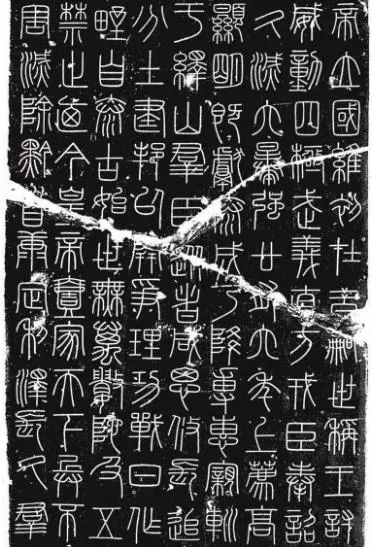 帝立國維初在昔嗣世稱王討
威動四極武義直方戎臣奉詔
久滅六暴強廿有六年上薦高
顯明既獻泰成乃降專惠寴巡
于繹山羣臣從者咸思攸長追
分土建邦以開爭理功戰日作
野自泰古始世無萬數陀及五
禁止廼今皇帝壹家天下兵不
害滅除黔首康定利澤長久羣